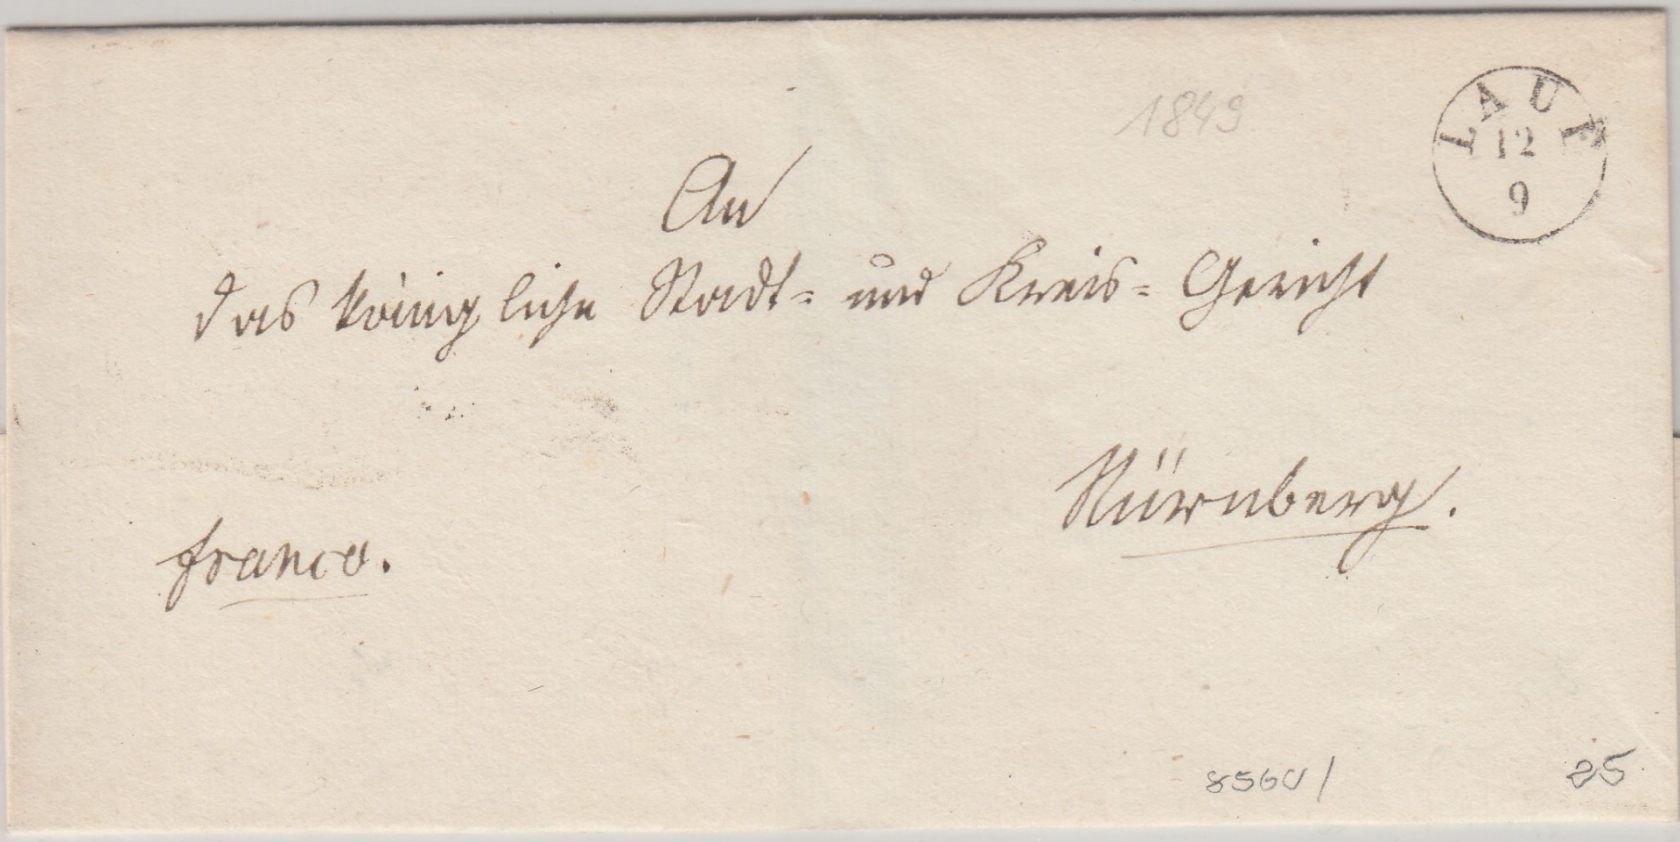 1849
LAUF
12
9
An
das königliche Stadt- und Kreis-Gericht
Nürnberg.
franco.
8560/
25